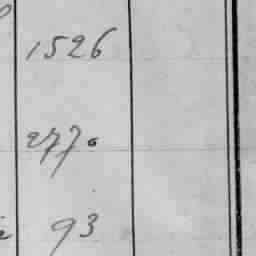 1526
2770
93